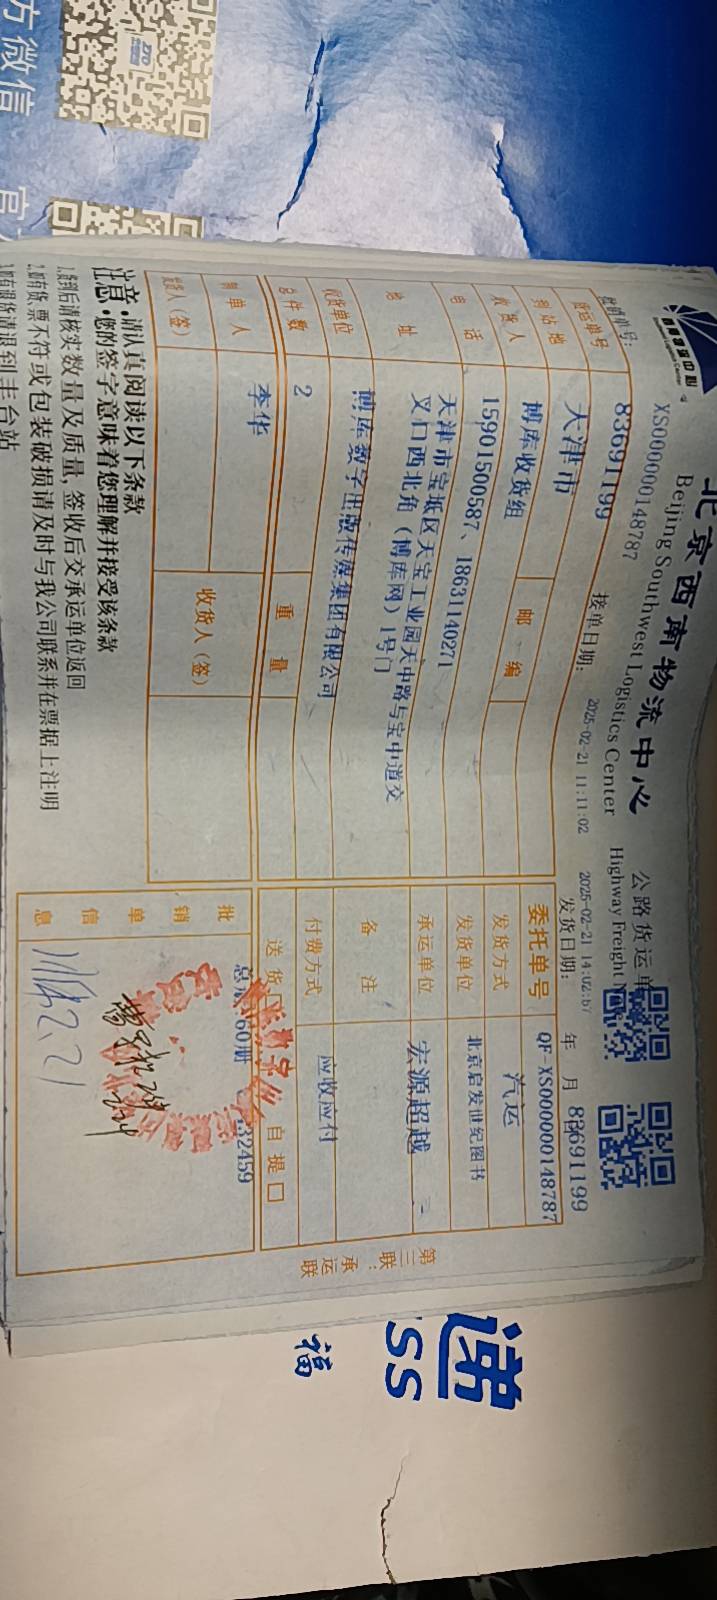 北京西南物流中心
Beijing Southwest Logistics Center
公路货运单
Highway Freight
西南物流中心
XS000000148787
接单日期: 2025-02-21 11:11:02
2025-02-21 14:02:57
发货日期: 年 月 日
83691199
货运单号 83691199
到站地 天津市
邮编
委托单号 QF XS000000148787
收货人 博库收货组
发货方式 汽运
电话 15901500587、18631140271
发货单位 北京启发世纪图书
地址 天津市宝坻区天宝工业园天中路与宝中道交
叉口西北角（博库网）1号门
承运单位 宏源超越
收货单位 博库数字出版传媒集团有限公司
备注
总件数 2
重量
付费方式 应收应付
送货 自提
制单人 李华
收货人（签）
发货人（签）
批销单信息
60册
32459
2.21
第三联:承运联
注意:请认真阅读以下条款
您的签字意味着您理解并接受该条款
1.货到后请核实数量及质量,签收后交承运单位返回
2.如有货、票不符或包装破损请及时与我公司联系并在票据上注明
3.如有退货请退到丰台站
方微信
官
ZTO
递
SS
福